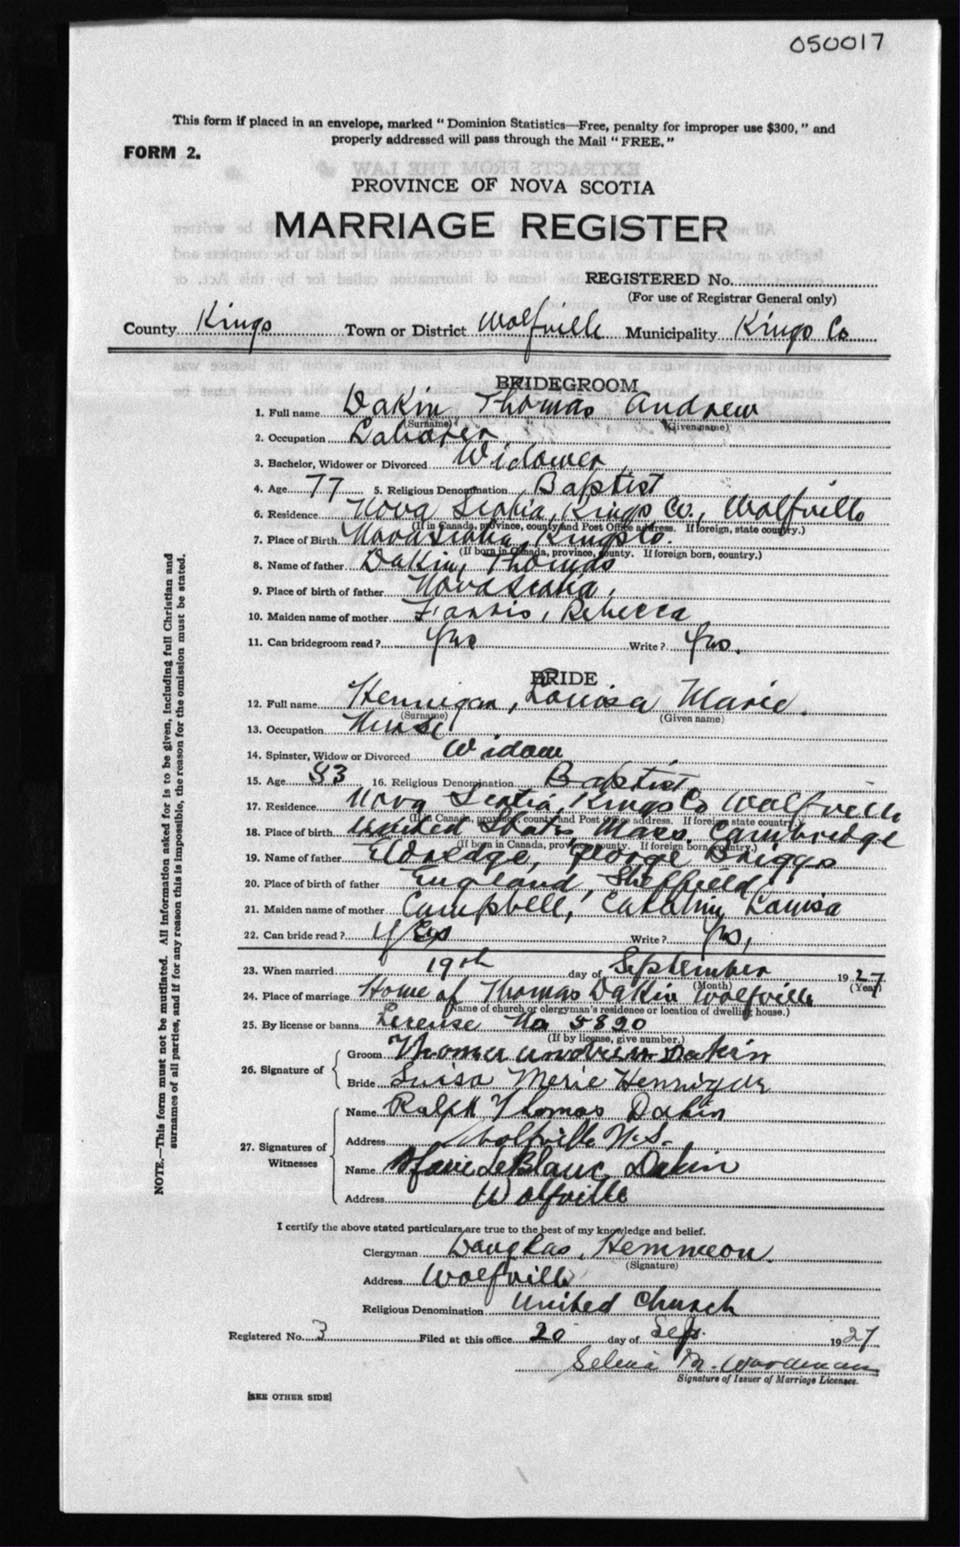 050017
This form if placed in an envelope, marked "Dominion Statistics—Free, penalty for improper use $300," and
properly addressed will pass through the Mail "FREE."
FORM 2.
PROVINCE OF NOVA SCOTIA
MARRIAGE REGISTER
REGISTERED No.
(For use of Registrar General only)
County Kings Town or District Wolfville Municipality Kings Co
BRIDEGROOM
1. Full name Dakin Thomas Andrew
(Surname) (Given name)
2. Occupation Laborer
3. Bachelor, Widower or Divorced Widower
4. Age 77 5. Religious Denomination Baptist
6. Residence Nova Scotia, Kings Co., Wolfville
(If in Canada, province, county and Post Office address. If foreign, state country.)
7. Place of Birth Nova Scotia, Kings Co.
(If born in Canada, province, county. If foreign born, country.)
8. Name of father Dakin, Thomas
9. Place of birth of father Nova Scotia,
10. Maiden name of mother Rebecca
11. Can bridegroom read? Yes Write? Yes.
BRIDE
12. Full name Hennigar, Louisa Marie.
(Surname) (Given name)
13. Occupation Nurse
14. Spinster, Widow or Divorced Widow
15. Age 53 16. Religious Denomination Baptist
17. Residence Nova Scotia, Kings Co Wolfville
(If in Canada, province, county and Post Office address. If foreign state country.)
18. Place of birth United States, Mass. Cambridge
(If born in Canada, province, county. If foreign born, country.)
19. Name of father Eldredge, George Briggs
20. Place of birth of father England, Sheffield
21. Maiden name of mother Campbell, Louisa
22. Can bride read? Yes Write? Yes,
23. When married 19th day of September 1927
(Month) (Year)
24. Place of marriage Home of Thomas Dakin Wolfville
(Name of church or clergyman's residence or location of dwelling house.)
25. By license or banns License No 5820
(If by license, give number.)
26. Signature of
Groom Thomas Andrew Dakin
Bride Luisa Merie Hennigar
27. Signatures of Witnesses
Name Ralph Thomas Dakin
Address Wolfville N.S.
Name Marie LeBlanc Dakin
Address Wolfville
I certify the above stated particulars are true to the best of my knowledge and belief.
Clergyman Douglas Hemmeon.
(Signature)
Address Wolfville
Religious Denomination United Church
Registered No. 3 Filed at this office 20 day of Sep. 1927
Selena M. Woodman
Signature of Issuer of Marriage Licenses.
[SEE OTHER SIDE]
NOTE.—This form must not be mutilated. All information asked for is to be given, including full Christian and
surnames of all parties, and if for any reason this is impossible, the reason for the omission must be stated.